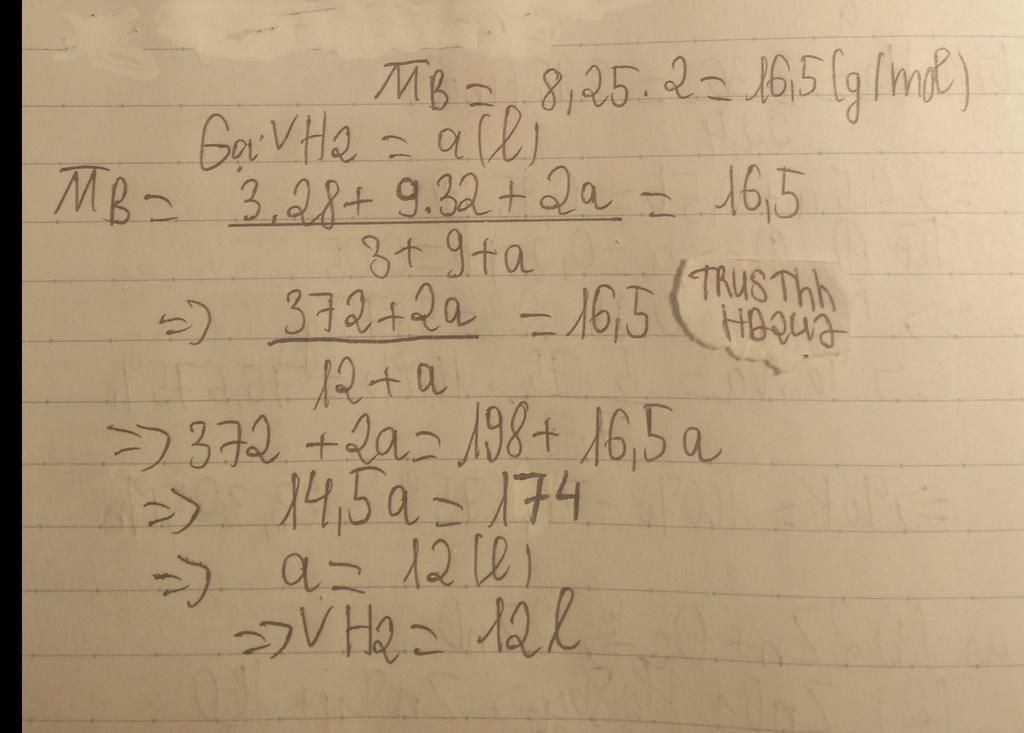 M̅B = 8,25.2 = 16,5 (g/mol)
Gọi VH2 = a(l)
M̅B = (3.28 + 9.32 + 2a)/(3 + 9 + a) = 16,5
=> (372 + 2a)/(12 + a) = 16,5
=> 372 + 2a = 198 + 16,5a
=> 14,5a = 174
=> a = 12 (l)
=> VH2 = 12l